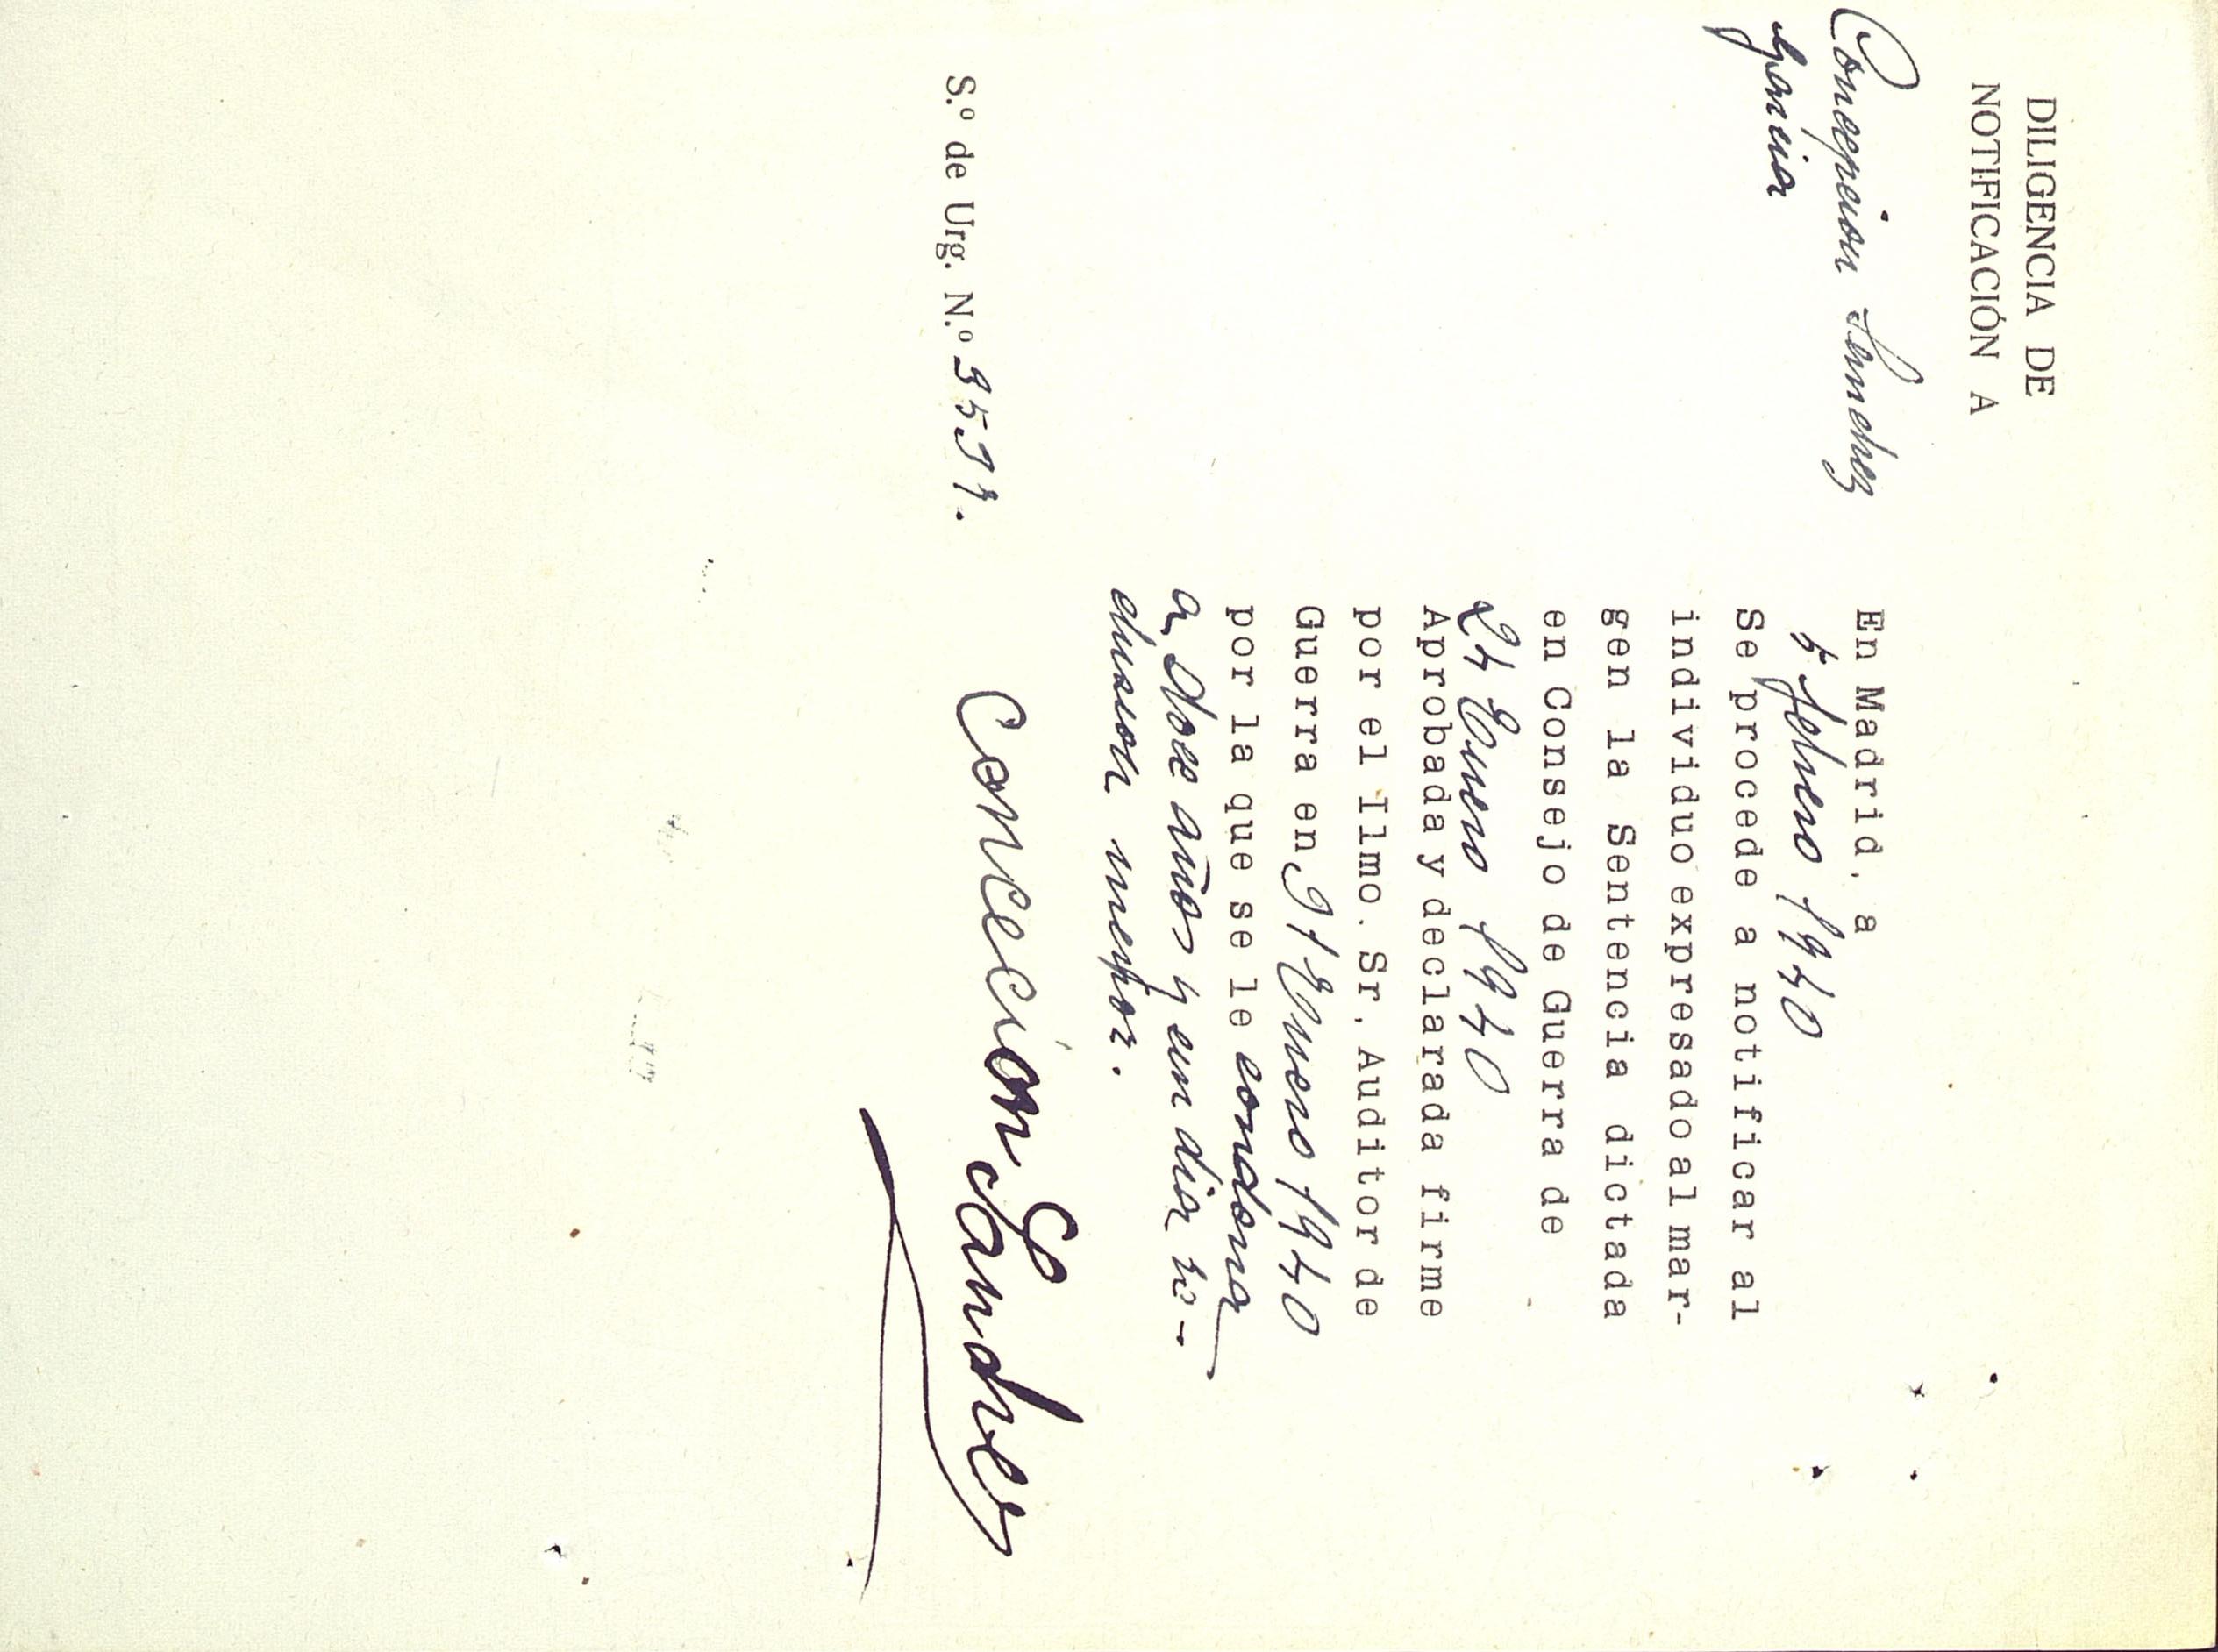 DILIGENCIA DE
NOTIFICACIÓN A
Concepcion Sanchez
Garcia
En Madrid, a
5 Febrero 1940
Se procede a notificar al
individuo expresado al mar-
gen la Sentencia dictada
en Consejo de Guerra de
24 Enero 1940
Aprobada y declarada firme
por el Ilmo. Sr. Auditor de
Guerra en 31 Enero 1940
por la que se le condena
a doce años y un dia re-
clusion menor.
S.º de Urg. N.º
Concecion Sanchez